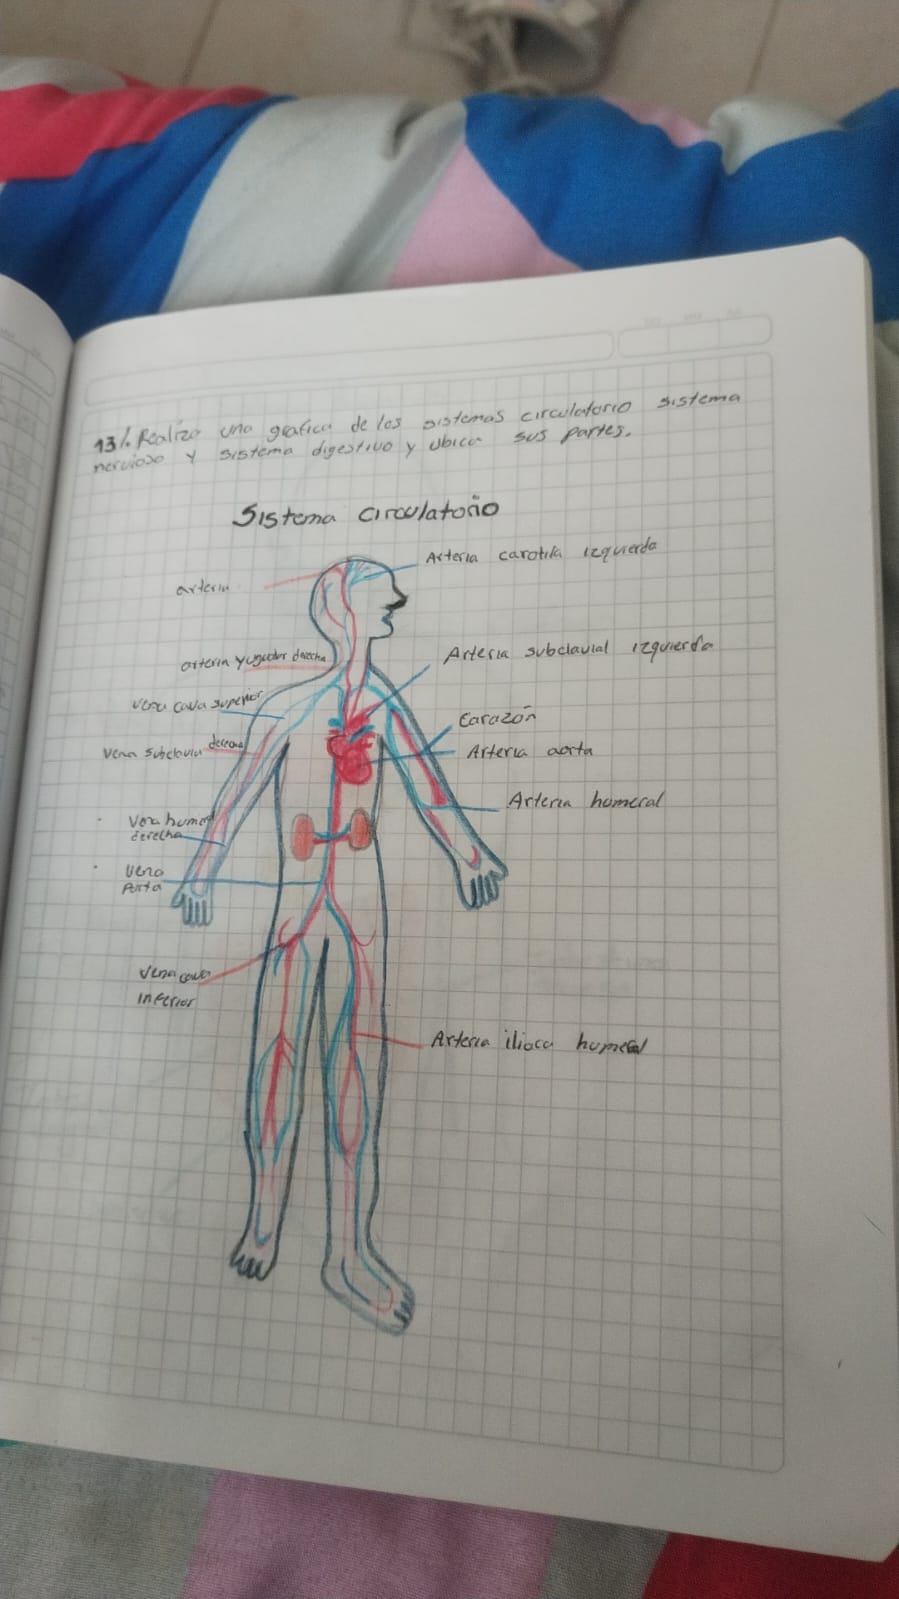 13/. Realizo una grafica de los sistemas circulatorio sistema
nervioso y sistema digestivo y ubica sus partes.
Sistema circulatorio
Arteria carotida izquierda
arteria
Arteria subclavial izquierda
arteria yugular derecha
vena cava superior
Corazón
vena subclavia derecha
Arteria aorta
Arteria homeral
Vena humeral
derecha
Vena
Porta
Vena cava
inferior
Arteria iliaca humeral